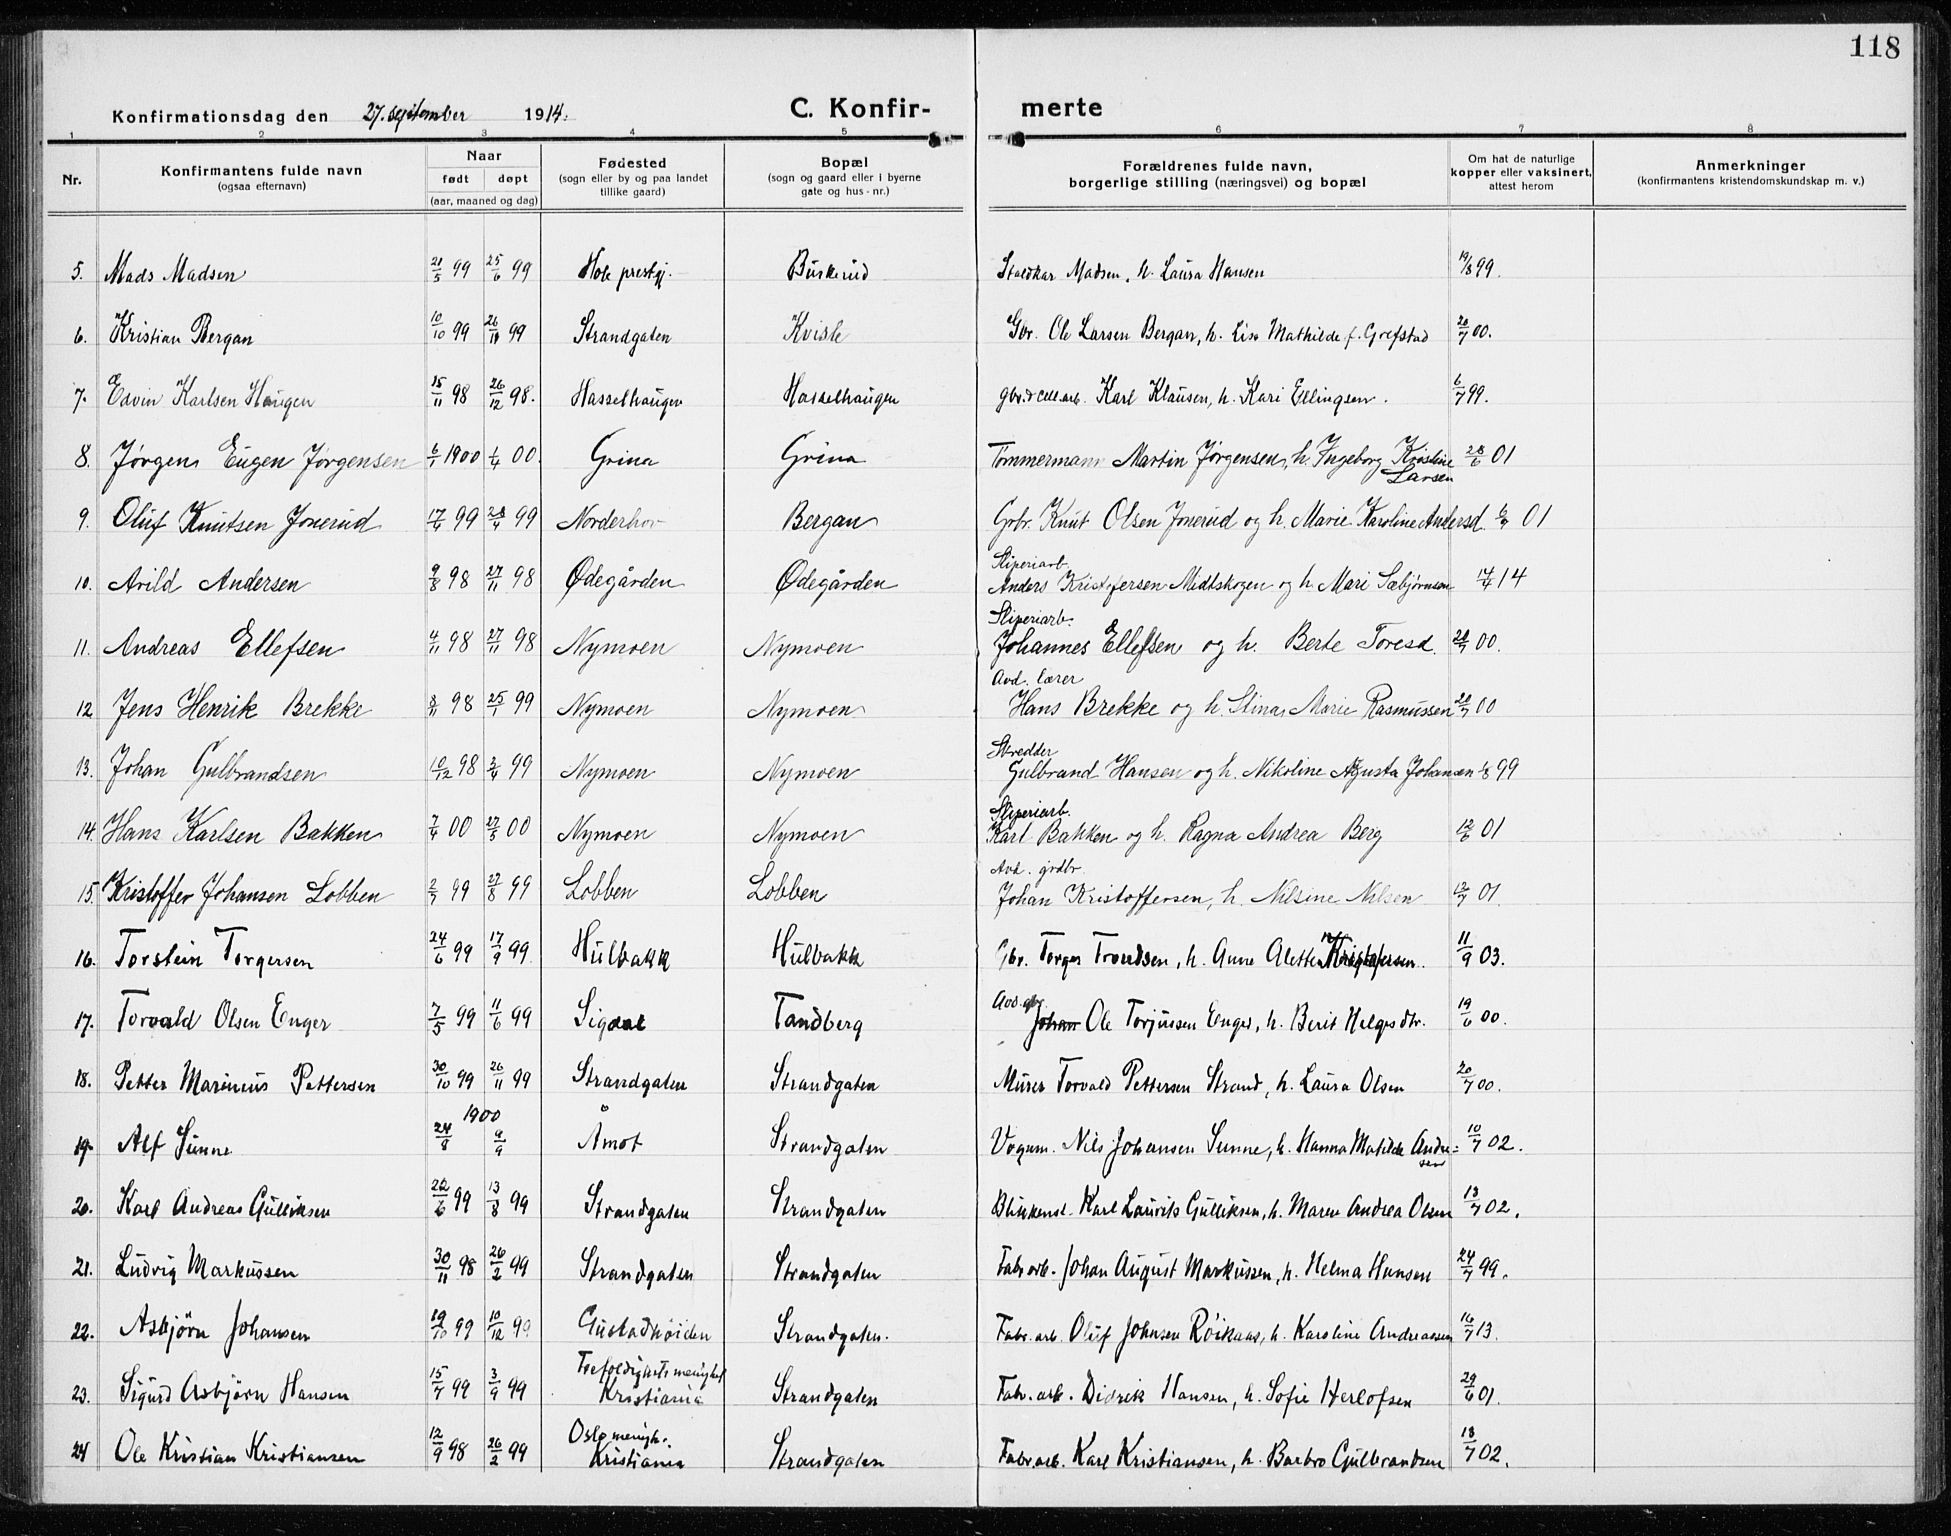 118
Konfirmationsdag den 27. september 1914.
C. Konfirmerte
1 2 3 4 5 6 7 8
Nr.
Konfirmantens fulde navn (ogsaa efternavn)
Naar født døpt (aar, maaned og dag)
Fødested (sogn eller by og paa landet tillike gaard)
Bopæl (sogn og gaard eller i byerne gate og hus-nr.)
Forældrenes fulde navn, borgerlige stilling (næringsvei) og bopæl
Om hat de naturlige kopper eller vaksinert, attest herom
Anmerkninger (konfirmantens kristendomskundskap m. v.)
5. Mads Madsen 21/5 99 25/6 99 Hole prestgj. Buskerud Staldkar Madsen, h. Laura Hansen 19/8 99.
6. Kristian Bergan 10/10 99 26/11 99 Strandgaten Kvisle Gbr. Ole Larsen Bergan, h. Lise Mathilde f. Grefstad 20/7 00.
7. Edvin Karlsen Haugen 15/11 98 26/12 98. Hasselhaugen Hasselhaugen gbr. & cell.arb. Karl Klausen, h. Kari Ellingsen. 6/7 99.
8. Jørgen Eugen Jørgensen 6/1 1900 1/4 00. Grina Grina Tømmermann Martin Jørgensen, h. Ingeborg Kristine Larsen 28/6 01
9. Oluf Knutsen Jonerud 17/4 99 28/4 99 Norderhov Bergan Grbr. Knut Olsen Jonerud og h. Marie Karoline Andersd. 6/7 01
10. Arild Andersen 9/8 98 27/11 98 Ødegården Ødegården Sliperiarb. Anders Kristofersen Midtskogen og h. Mari Sæbjørnsen 14/4 14
11. Andreas Ellefsen 4/11 98 27/11 98 Nymoen Nymoen Sliperiarb. Johannes Ellefsen og h. Berte Toresd. 20/7 00.
12 Jens Henrik Brekke 8/11 98 25/1 99 Nymoen Nymoen Avd. lærer Hans Brekke og h. Stina Marie Rasmussen 20/7 00
13. Johan Gulbrandsen 10/12 98 3/4 99 Nymoen Nymoen Skredder Gulbrand Hansen og h. Nikoline Agusta Johansen 1/8 99
14. Hans Karlsen Bakken 7/4 00 27/5 00 Nymoen Nymoen Sliperiarb. Karl Bakken og h. Ragna Andrea Berg 12/6 01
15. Kristoffer Johansen Lobben 2/7 99 27/8 99 Lobben Lobben Avd. grdbr. Johan Kristoffersen, h. Nilsine Nilsen 12/7 01.
16. Torstein Torgersen 24/6 99 17/9 99 Hulbakk Hulbakk Gbr. Torger Trondsen, h. Anne Alette Kristofersen. 11/9 03.
17. Torvald Olsen Enger 7/5 99 11/6 99 Sigdal Tandberg Avd. gbr. Johan Ole Torjussen Enger, h. Berit Helgesdtr. 19/6 00.
18. Petter Marinius Pettersen 30/10 99 26/11 99 Strandgaten Strandgaten Murer Torvald Pettersen Strand, h. Laura Olsen 20/7 00.
19. Alf Sunne 24/8 1900 9/9 Åmot Strandgaten Vognm. Nils Johansen Sunne, h. Hanna Matilde Andresen 10/7 02.
20. Karl Andreas Gulliksen 22/6 99 13/8 99 Strandgaten Strandgaten Blikkensl. Karl Laurits Gulliksen, h. Maren Andrea Olsen 18/7 02.
21. Ludvig Markussen 30/11 98 26/2 99 Strandgaten Strandgaten Fabr.arb. Johan August Markussen, h. Helma Hansen 24/7 99.
22. Asbjörn Johansen 19/10 99 10/12 99 Gustadhöiden Strandgaten. Fabr.arb. Oluf Johnsen Röikaas, h. Karoline Andreassen 16/7 13.
23. Sigurd Asbjörn Hansen 15/7 99 3/9 99 Trefoldighetsmenighet Kristiania Strandgaten Fabr.arb. Didrik Hansen, h. Sofie Herlofsen 29/6 01.
24 Ole Kristian Kristiansen 12/9 98 26/2 99 Oslo menigh. Kristiania Strandgaten Fabr.arb. Karl Kristiansen, h. Barbro Gulbrandsen 18/7 02.